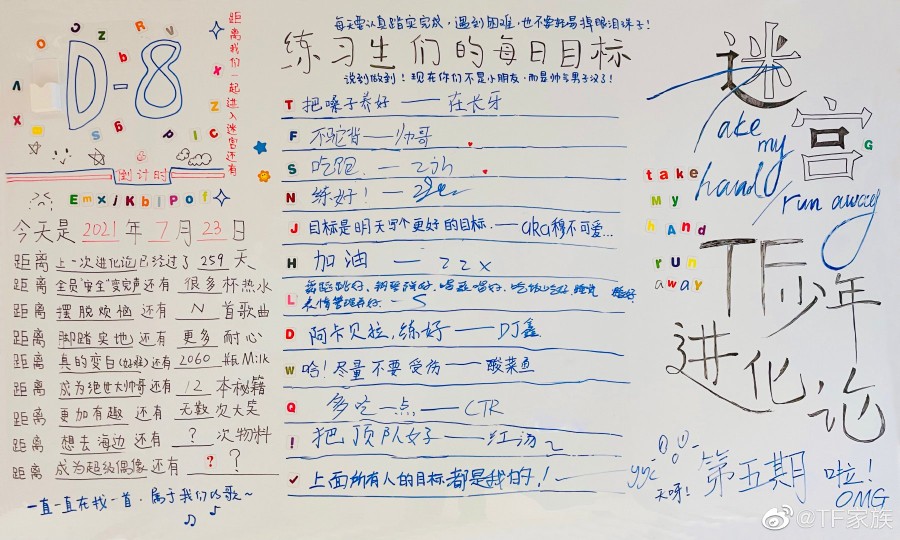 D-8
倒计时
E m x j K b l P o f
距离我们一起进入迷宫还有
今天是 2021 年 7 月 23 日
距离 上一次进化论已经过了 259 天
距离 全员"安全"变完声还有 很多 杯热水
距离 摆脱烦恼 还有 N 首歌曲
距离 脚踏实地 还有 更多 耐心
距离 真的变白(好难)还有 2060 瓶Milk
距离 成为绝世大帅哥还有 12 本秘籍
距离 更加有趣 还有 无数 次大笑
距离 想去海边 还有 ? 次物料
距离 成为超级偶像 还有 ? ?
一直一直在找一首,属于我们的歌~
每天要认真踏实完成,遇到困难,也不要轻易掉眼泪珠子!
练习生们的每日目标
说到做到!现在你们不是小朋友,而是帅气男子汉了!
T 把嗓子养好 —— 在长牙
F 不驼背 —— 帅哥
S 吃饱 —— zjh
N 练好! ——
J 目标是明天写个更好的目标. —— aka穆不可爱...
H 加油 —— zzx
L 舞蹈跳好,钢琴弹好,唱歌唱好,吃饭吃好,睡觉睡好
表情管理弄好. — S
D 阿卡贝拉,练好 —— DJ鑫
W 哈!尽量不要受伤 —— 酸菜鱼
Q 多吃一点 —— CTR
! 把顶队女子 —— 红汤
✓ 上面所有人的目标都是我的!
迷宫
Take my hand / run away
take My hAnd run away
TF少年进化论
yyc
天呀! 第五期 啦!
OMG
@TF家族